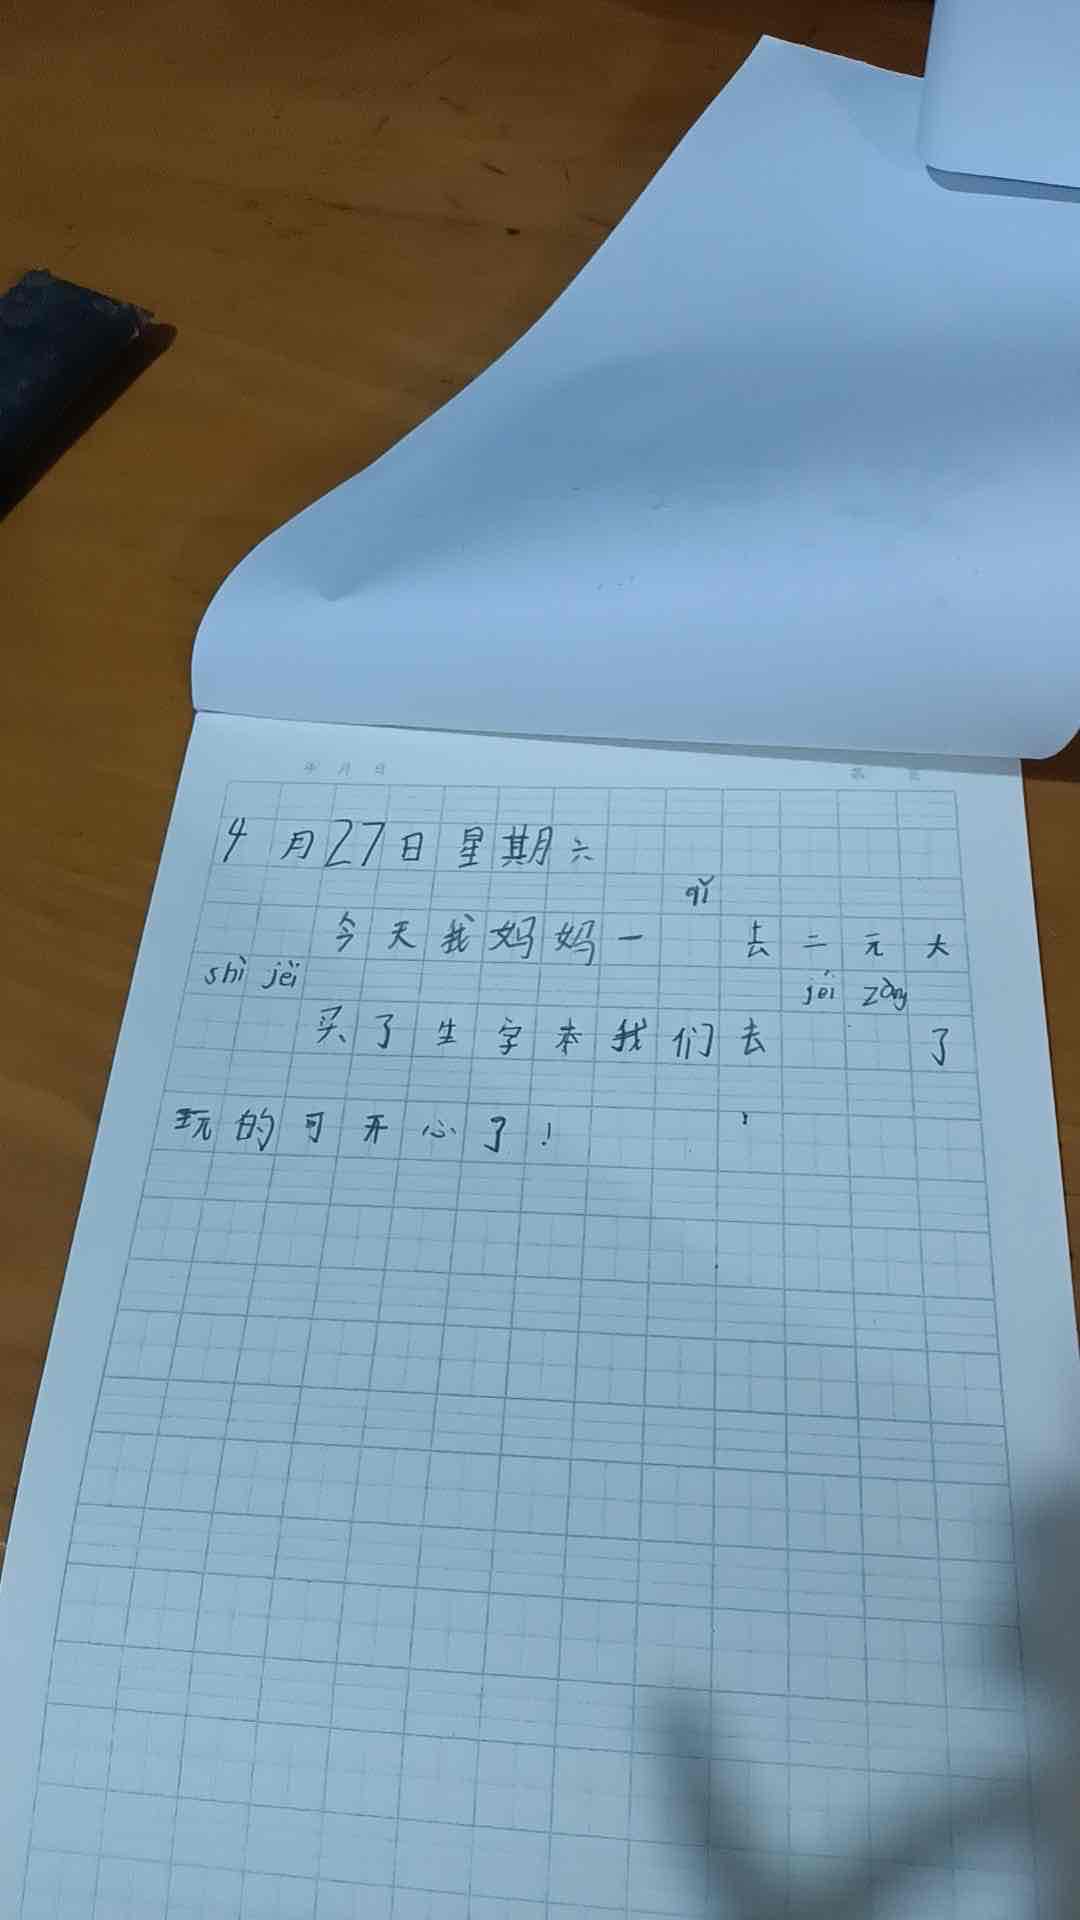 年 月 日
4月27日星期六
qǐ
今天我妈妈一 去二元大
shì jěi jéi zǒng
买了生字本我们去 了
玩的可开心了!